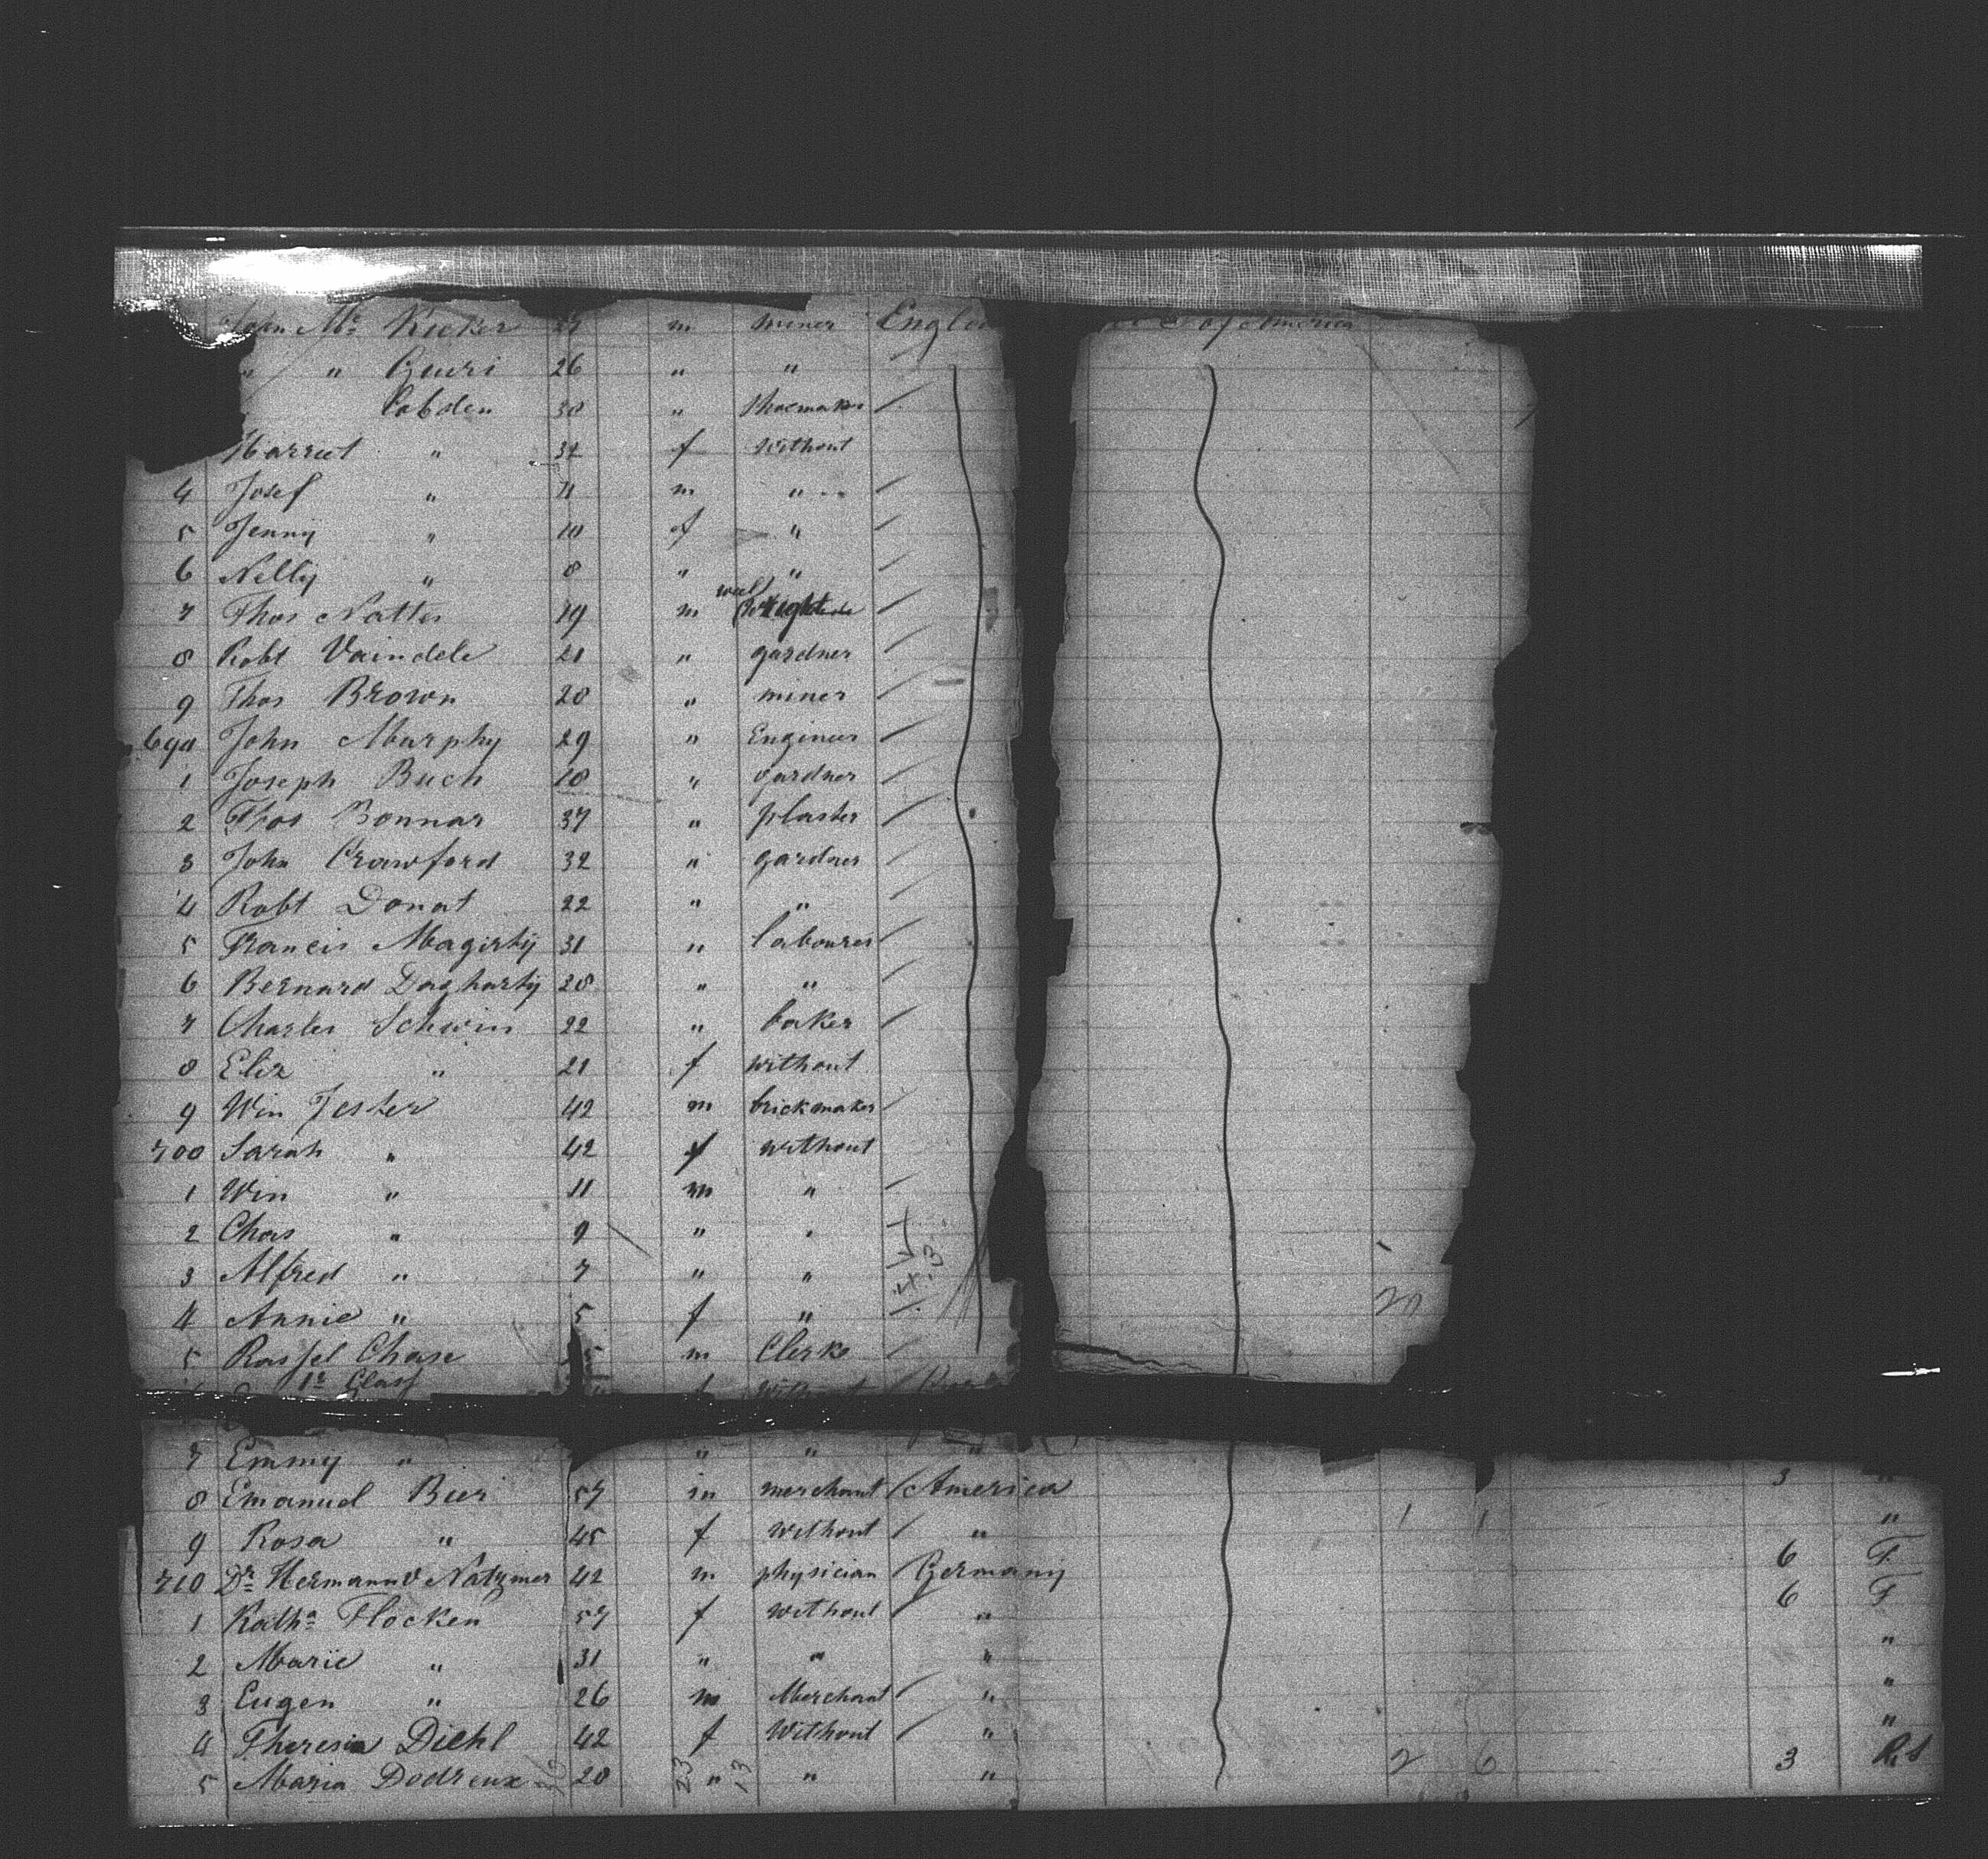 John Mc Kicker 27 m miner England U S of America
" " Geuri 26 " "
Cobden 30 " Shoemaker
Harriet " 32 f without
4 Josef " 11 m "
5 Jenny " 10 f "
6 Nelly " 8 " "
7 Thos Natter 19 m Wright
8 Robt Vaindele 21 " gardner
9 Thos Brown 28 " miner
690 John Murphy 29 " Engineer
1 Joseph Buch 18 " gardner
2 Thos Bonnar 37 " plaster
3 John Crawford 32 " gardner
4 Robt Donat 22 " "
5 Francis Magirty 31 " labourer
6 Bernard Dagharty 28 " "
7 Charles Schwin 22 " baker
8 Eliz " 21 f without
9 Win Jester 42 m brickmaker
700 Sarah " 42 f without
1 Win " 11 m "
2 Chas " 9 " "
3 Alfred " 7 " "
4 Annie " 5 f "
5 Rassel Chase m Clerk
1r Class
7 Emmy " " " "
8 Emanuel Bier 57 m merchant America 3 "
9 Rosa " 45 f without " 1 1 "
710 Dr Hermann v Natzmer 42 m physician Germany 6 F
1 Katha Flocken 57 f without " 6 F
2 Marie " 31 " " " "
3 Eugen " 26 m Merchant " "
4 Theresia Diehl 42 f Without " "
5 Maria Dodreux 20 " " " 2 6 3
23 13